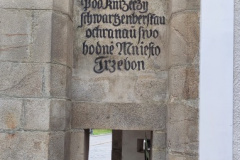 pod knížecži
schwarzenberskau
ochranau swo
bodné Miesto
Trzebon